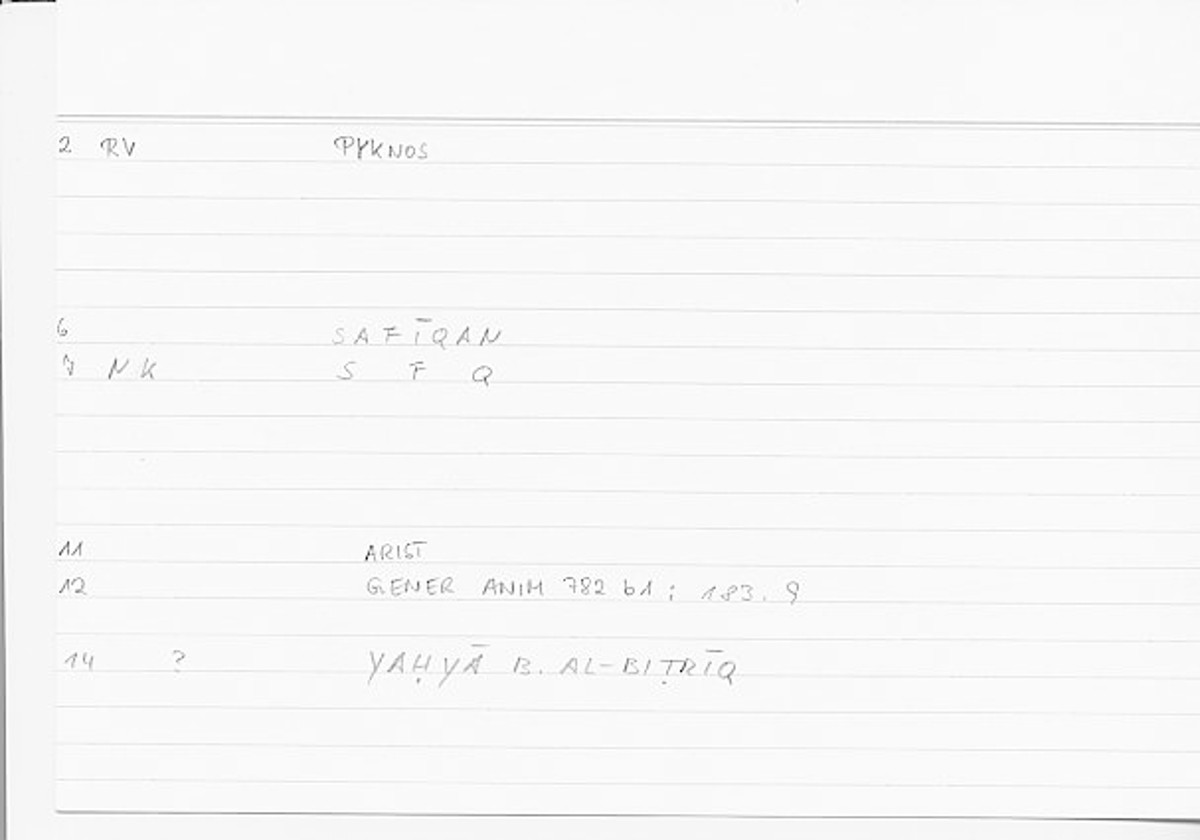 2 RV PYKNOS
6 SAFĪQAN
7 NK S F Q
11 ARIST
12 GENER ANIM 782 b1 ; 183.9
14 ? YAḤYĀ B. AL-BIṬRĪQ